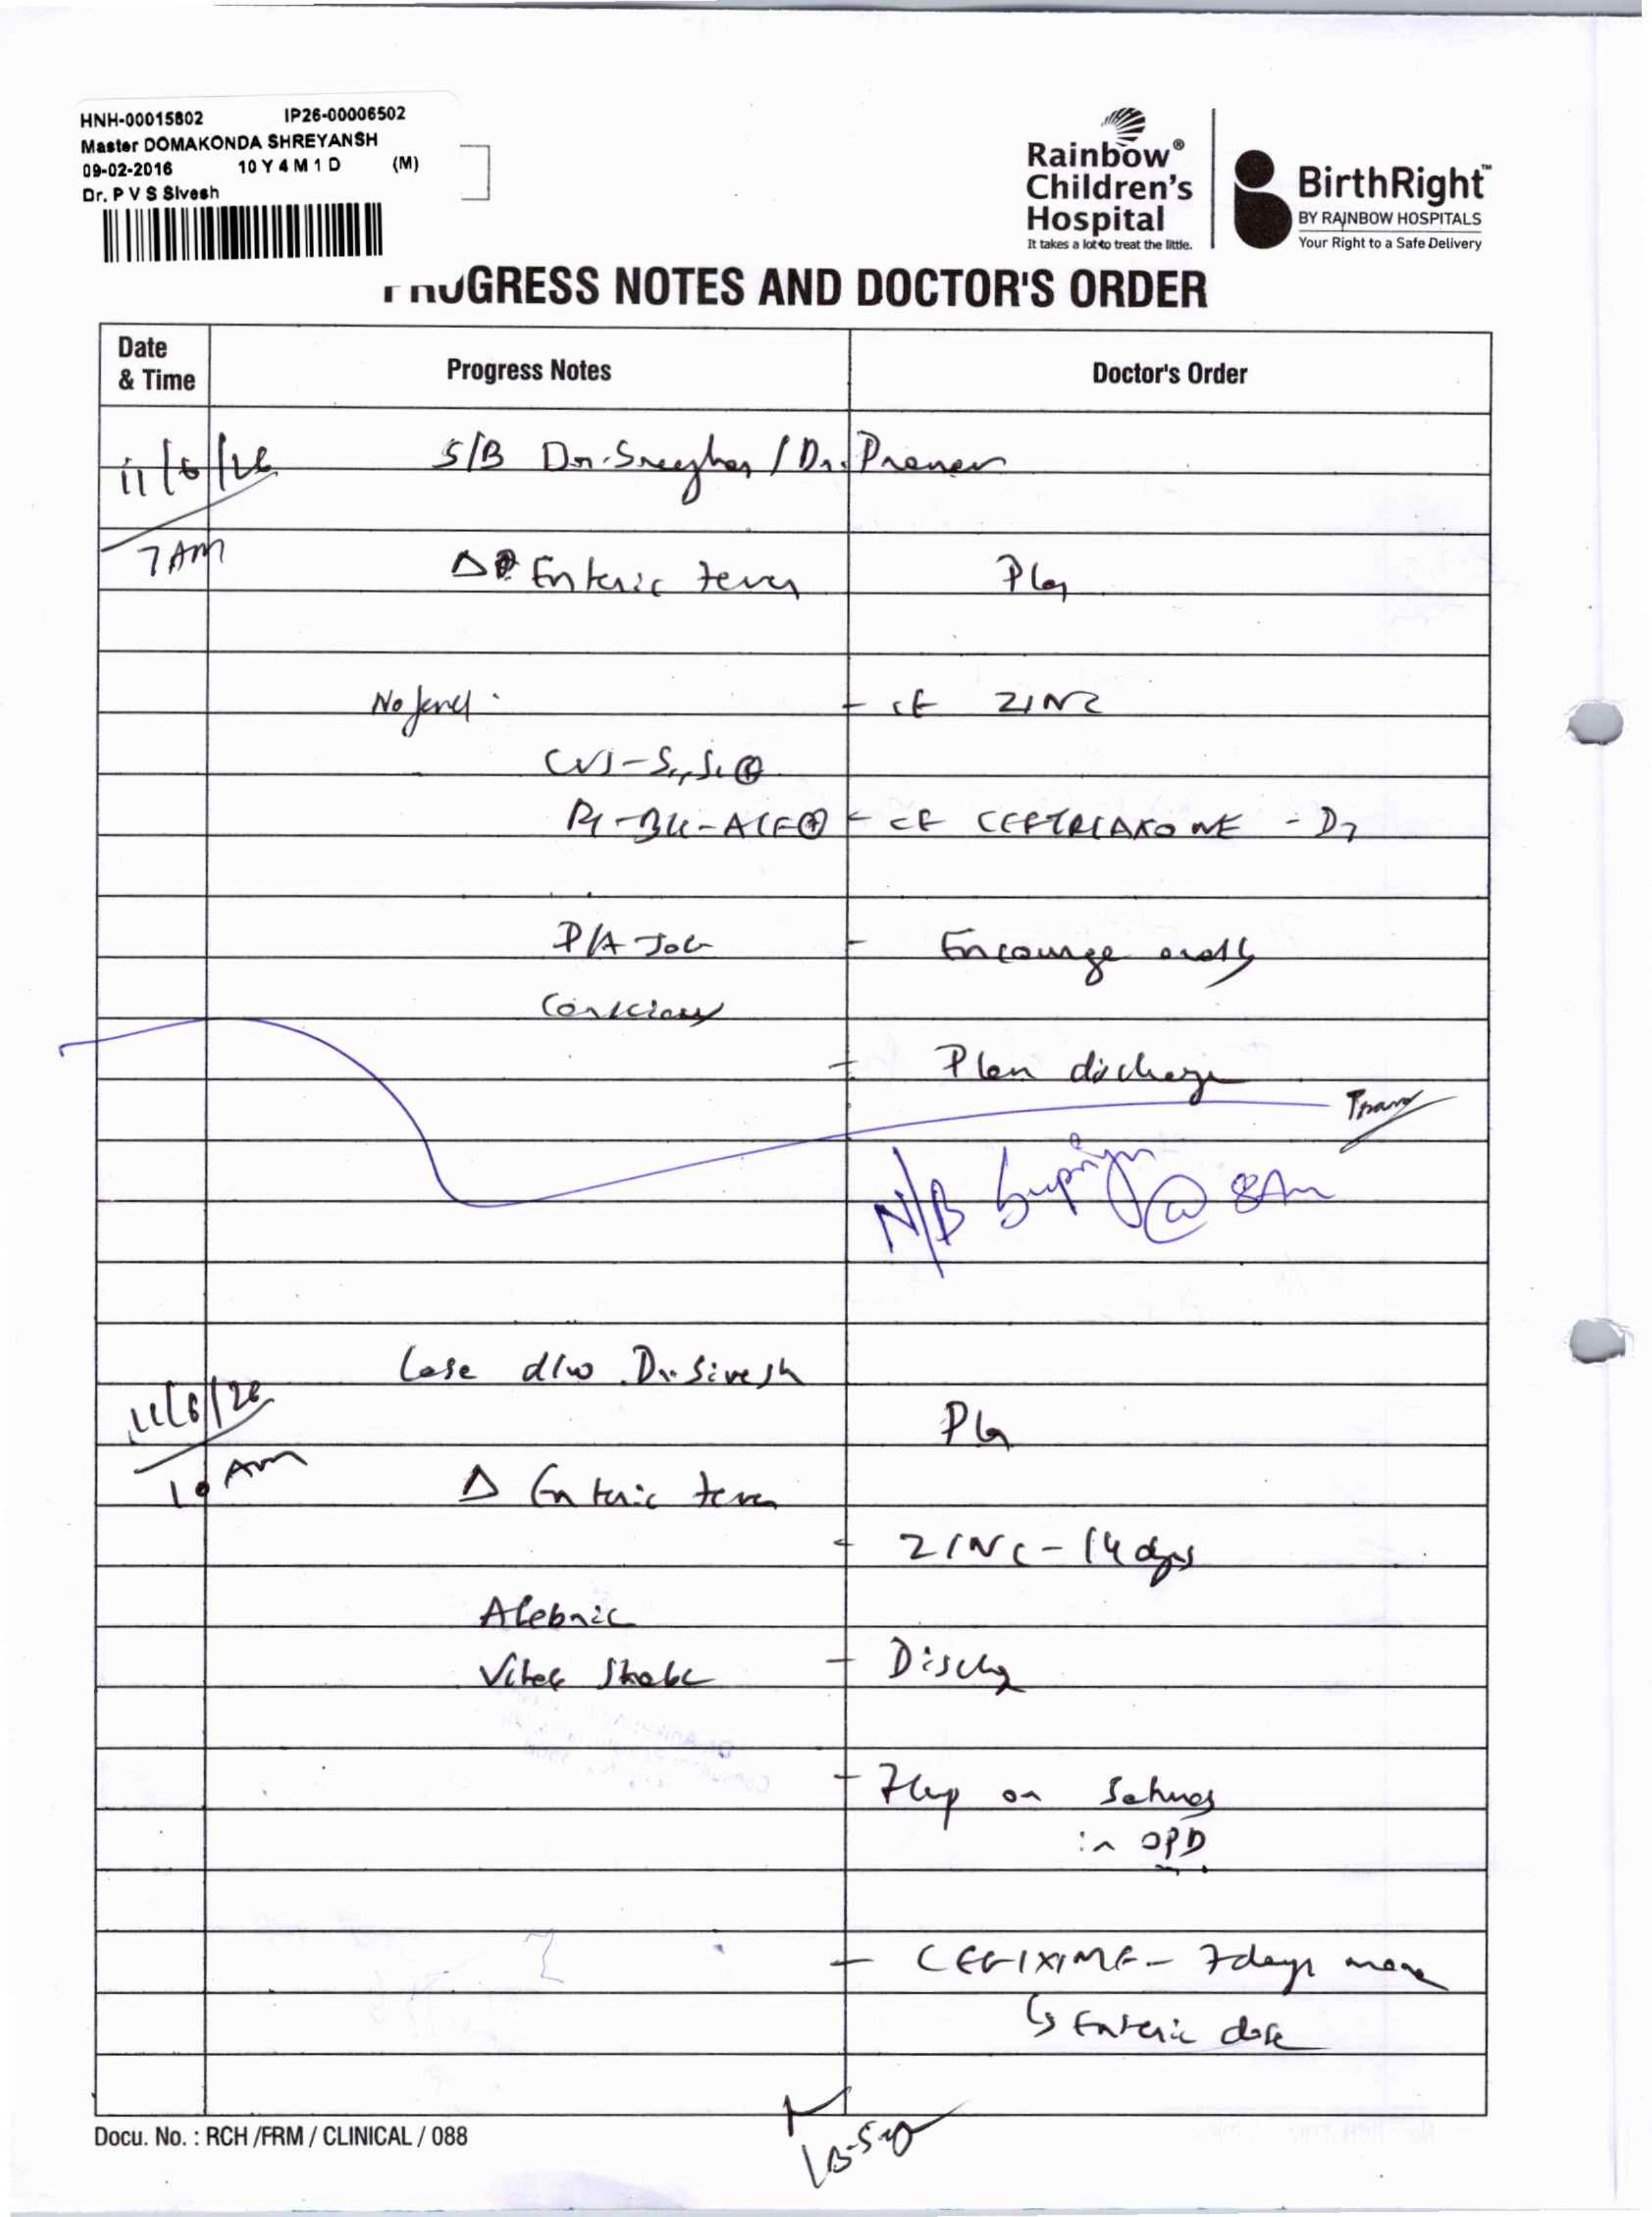 HNH-00015802 IP26-00006502
Master DOMAKONDA SHREYANSH
09-02-2016 10 Y 4 M 1 D (M)
Dr. P V S Sivesh
Rainbow®
Children's
Hospital
It takes a lot to treat the little.
BirthRight™
BY RAINBOW HOSPITALS
Your Right to a Safe Delivery
PROGRESS NOTES AND DOCTOR'S ORDER
Date & Time
Progress Notes
Doctor's Order
11/6/26 S/B Dr. / Dr.
7 AM
Δ Enteric fever
Plan
No
- ZINC
CVS - S1, S2 ⊕
- CEFTRIAXONE - D7
P/A Soft
- Encourage orally
Conscious
- Plan discharge
N/B @ 8Am
Case d/w Dr. Sivesh
11/6/26
10 AM
Plan
Δ Enteric fever
- ZINC - 14 days
Afebrile
Vitals Stable
- Discharge
- on Saturday
in OPD
- CEFIXIME - 7 days more
↳ Enteric dose
Docu. No. : RCH /FRM / CLINICAL / 088